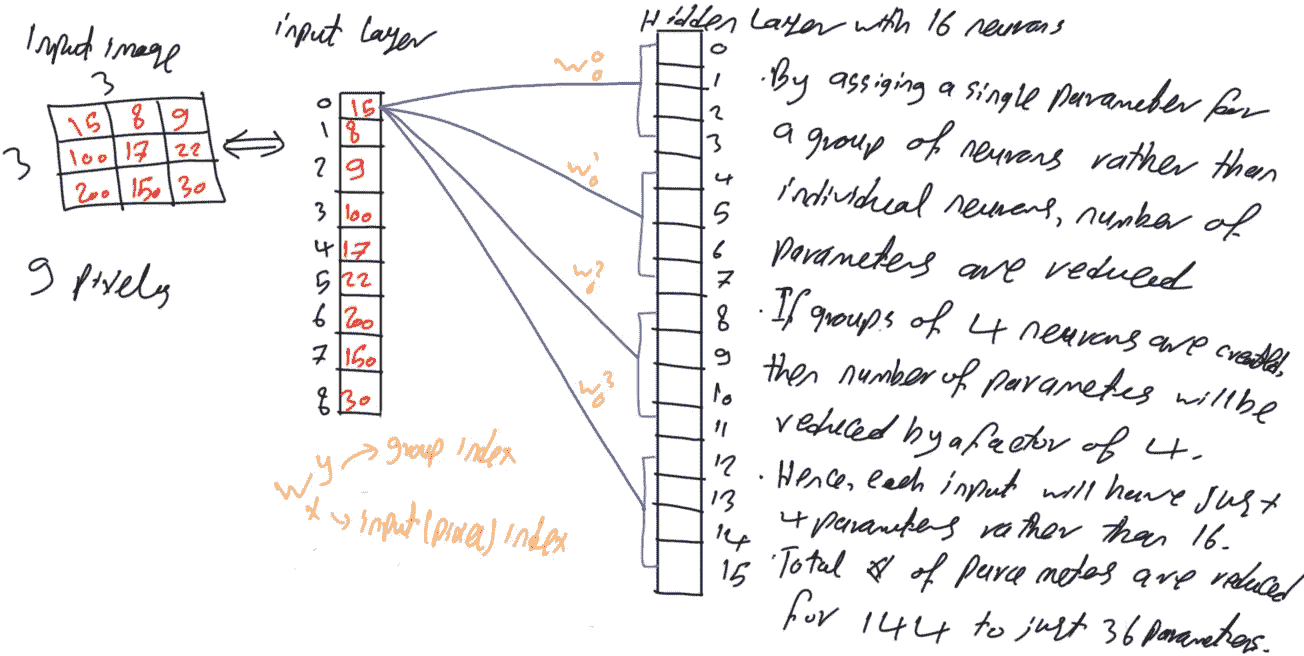 Input image
3
3
15 8 9
100 17 22
200 150 30
9 pixels
input Layer
0 15
1 8
2 9
3 100
4 17
5 22
6 200
7 150
8 30
w y → group index
x → input (pixel) index
w 0 0
w 1 0
w 2 0
w 3 0
Hidden Layer with 16 neurons
0
1
2
3
4
5
6
7
8
9
10
11
12
13
14
15
. By assiging a single parameter for
a group of neurons rather than
individual neurons, number of
parameters are reduced
. If groups of 4 neurons are created,
then number of parameters will be
reduced by a factor of 4.
. Hence, each input will have just
4 parameters rather than 16.
. Total # of parameters are reduced
for 144 to just 36 parameters.